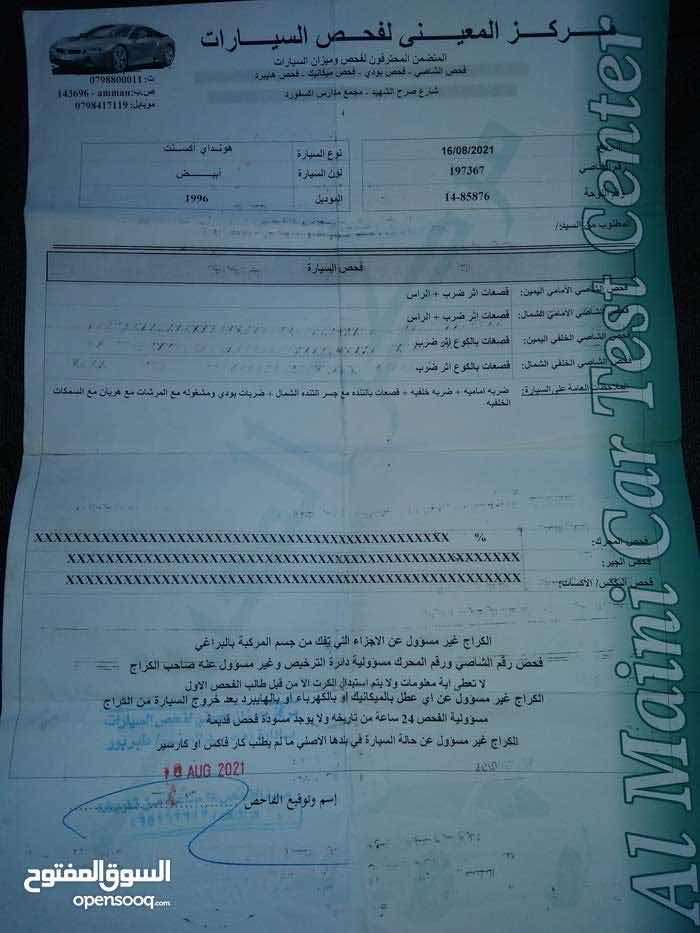 مركز المعينى لفحص السيارات
المتضمن المحترفون لفحص وميزان السيارات
فحص الشاصي - فحص بودي - فحص ميكانيك - فحص هايبرد
شارع صرح الشهيد - مجمع مدارس اكسفورد
ت: 0798800011
ص.ب: amman - 143696
موبايل: 0798417119
16/08/2021
نوع السيارة هونداي اكسنت
197367
لون السيارة أبيض
14-85876
الموديل 1996
المطلوب من السيد/
فحص السيارة
فحص الشاصي الأمامي اليمين: قصعات اثر ضرب + الراس
الشاصي الأمامي الشمال: قصعات إثر ضرب + الراس
الشاصي الخلفي اليمين: قصعات بالكوع أثر ضرب
فحص الشاصي الخلفي الشمال: قصعات بالكوع اثر ضرب
العامة على السيارة: ضربه اماميه + ضربه خلفيه + قصعات بالتنده مع جسر التنده الشمال + ضربات بودي ومشغوله مع المرشات مع هريان مع السمكات الخلفيه
فحص المحرك: %
فحص الجير:
فحص البكس/ الاكسات:
الكراج غير مسؤول عن الاجزاء التي تفك من جسم المركبة بالبراغي
فحص رقم الشاصي ورقم المحرك مسؤولية دائرة الترخيص وغير مسوول عنه صاحب الكراج
لا تعطى اية معلومات ولا يتم استبدال الكرت الا من قبل طالب الفحص الاول
الكراج غير مسؤول عن اي عطل بالميكانيك او بالكهرباء او بالهايبرد بعد خروج السيارة من الكراج
مسؤولية الفحص 24 ساعة من تاريخه ولا يوجد مسودة فحص قديمة
الكراج غير مسؤول عن حالة السيارة في بلدها الاصلي ما لم يطلب كار فاكس او كارسير
AUG 2021
إسم وتوقيع الفاحص
Al Maini Car Test Center
السوق المفتوح
opensooq.com